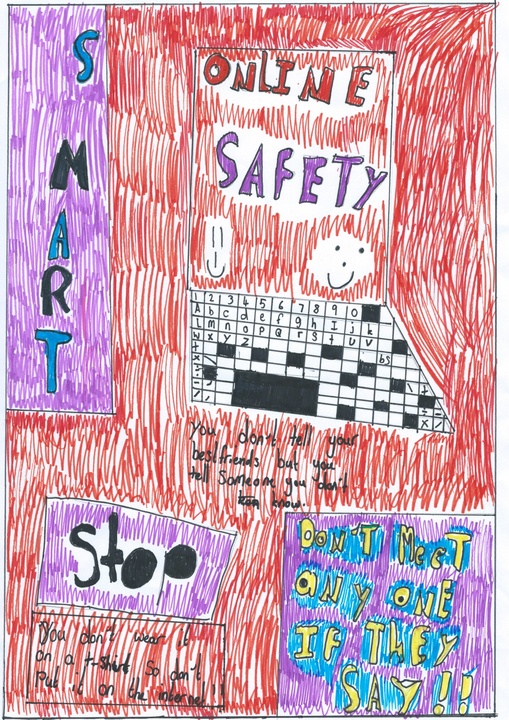 SMART
ONLINE
SAFETY
1 2 3 4 5 6 7 8 9 0
A b c d e f g h I j k
L m n o p q r s t u v
W x y z
bs
You don't tell your
bestfriends but you
tell someone you don't
know..
Stop
You don't wear it
on a t-shirt so don't
Put it on the internet!
DON'T MeeT
ANY ONE
IF THEY
SAY!!